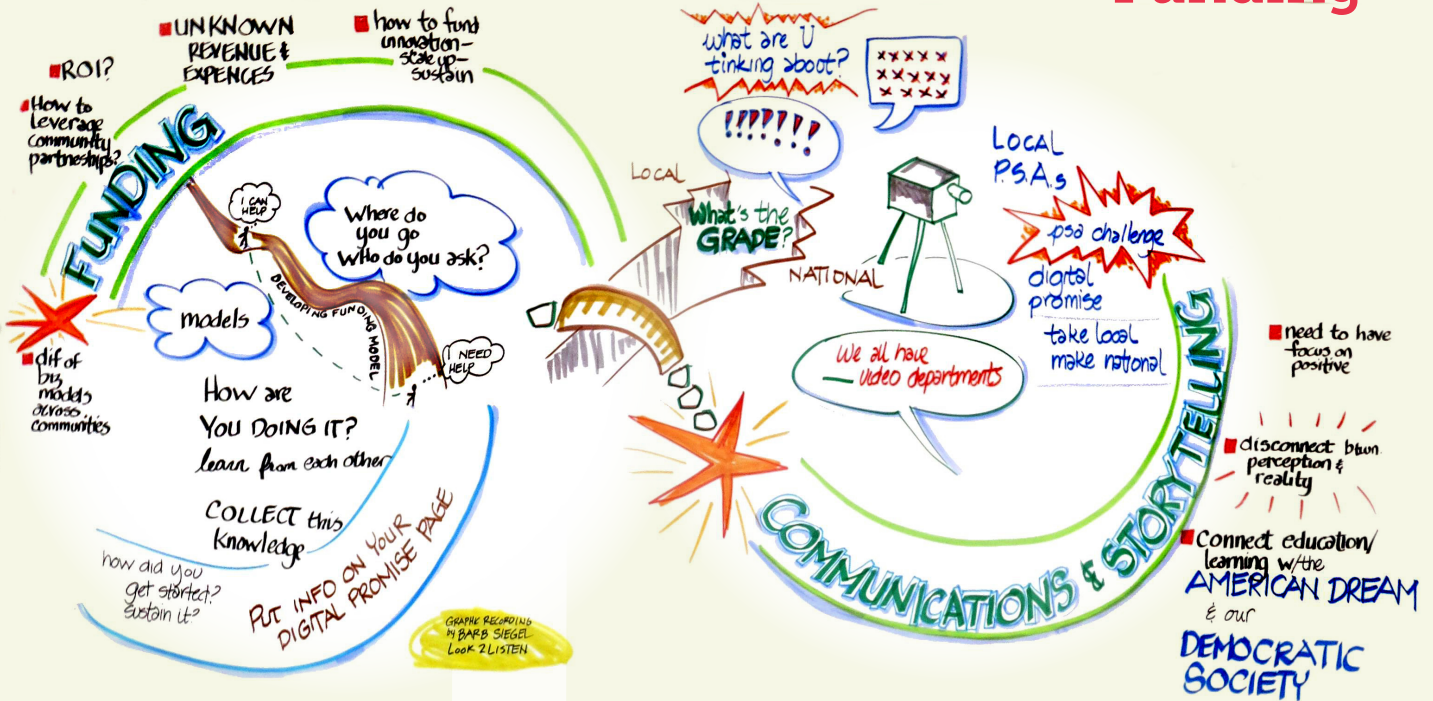 Funding
UNKNOWN
REVENUE &
EXPENCES
how to fund
innovation-
scale up-
sustain
ROI?
How to
leverage
community
partneships?
FUNDING
I CAN
HELP
Where do
you go
Who do you ask?
DEVELOPING FUNDING MODEL
models
I NEED
HELP
dif of
biz
models
across
communities
How are
YOU DOING IT?
learn from each other
COLLECT this
Knowledge
how did you
get started?
sustain it?
PUT INFO ON YOUR
DIGITAL PROMISE PAGE
GRAPHIC RECORDING
by BARB SIEGEL
LOOK 2 LISTEN
what are U
tinking aboot?
!!!!!!!
xxxxx
xxxxx
xxxx
LOCAL
What's the
GRADE?
NATIONAL
LOCAL
P.S.A.s
psa challenge
digital
promise
take local
make national
We all have
video departments
COMMUNICATIONS & STORYTELLING
need to have
focus on
positive
disconnect btwn
perception &
reality
Connect education/
learning w/the
AMERICAN DREAM
& our
DEMOCRATIC
SOCIETY